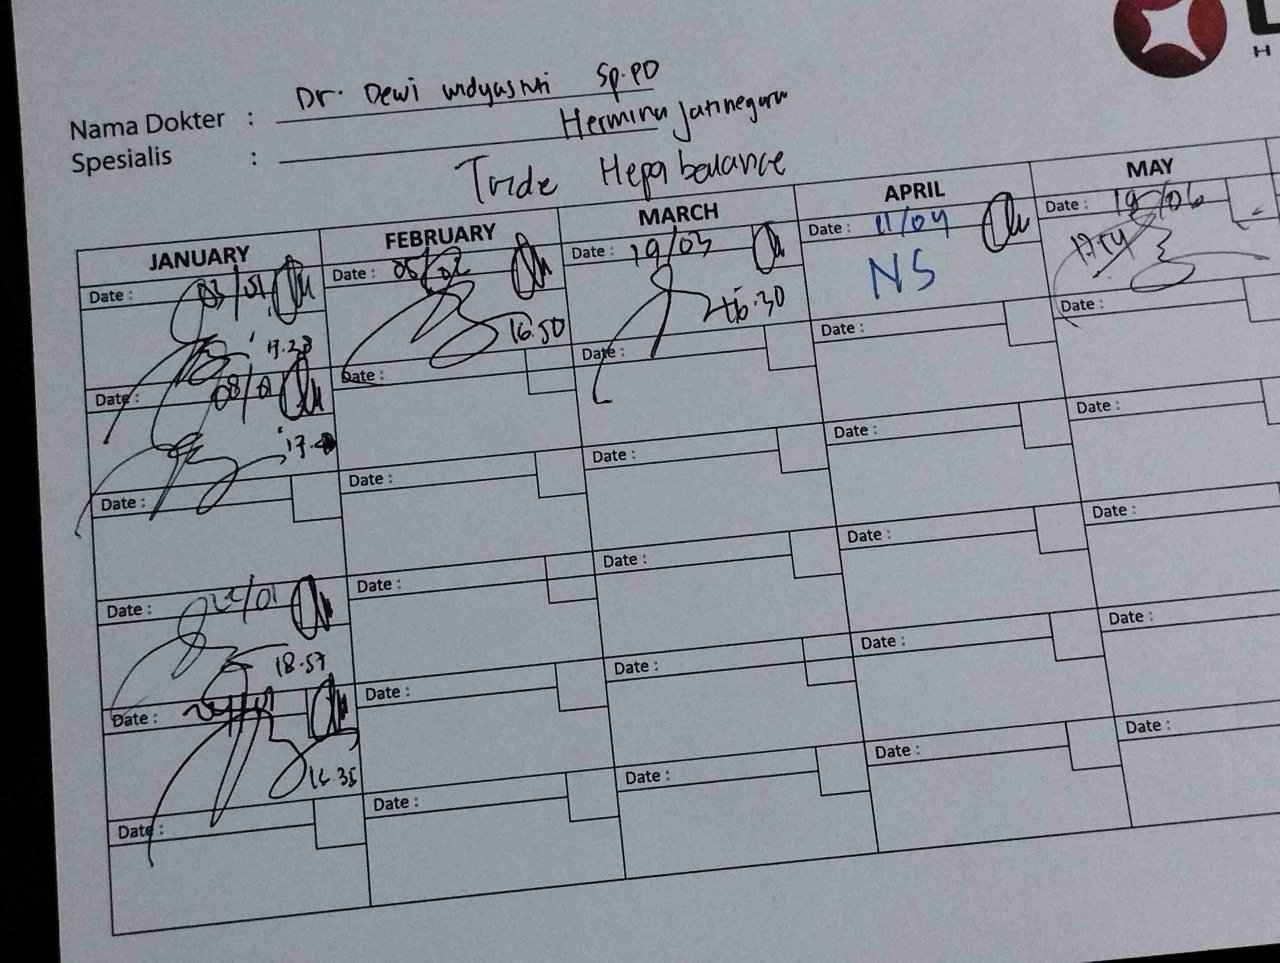 Nama Dokter : Dr. Dewi Widyastuti Sp.PD
Spesialis : Hermina Jatinegara
Tride Hepa balance
JANUARY FEBRUARY MARCH APRIL MAY
Date : 03/01 Date : 05/02 Date : 19/03 Date : 11/04 Date : 19/06
17.28 16.50 16.30 NS 17.54
Date : 08/01 Date : Date : Date : Date :
Date : Date : Date : Date : Date :
Date : 22/01 Date : Date : Date : Date :
18.57
Date : Date : Date : Date : Date :
16.35
Date : Date : Date : Date :